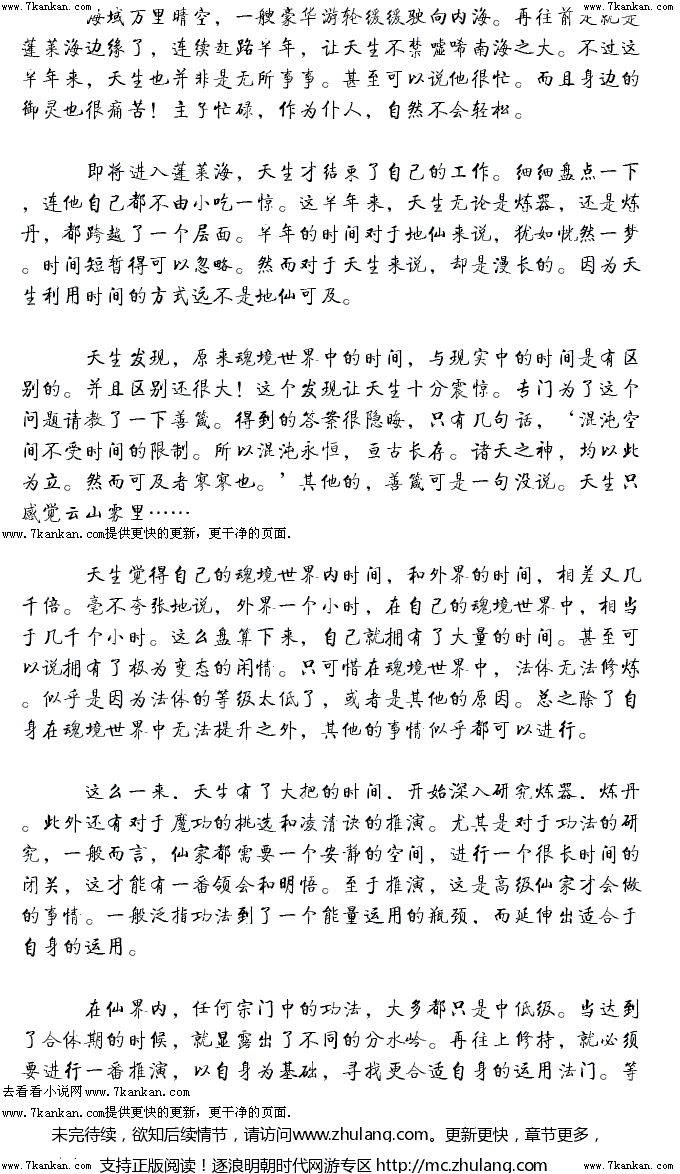 www.7kankan.com www.7kankan.com
海域万里晴空，一艘豪华游轮缓缓驶向内海。再往前走就是
蓬莱海边缘了，连续赶路半年，让天生不禁嘘唏南海之大。不过这
半年来，天生也并非是无所事事。甚至可以说他很忙。而且身边的
御灵也很痛苦！主子忙碌，作为仆人，自然不会轻松。
即将进入蓬莱海，天生才结束了自己的工作。细细盘点一下
，连他自己都不由小吃一惊。这半年来，天生无论是炼器，还是炼
丹，都跨越了一个层面。半年的时间对于地仙来说，犹如恍然一梦
。时间短暂得可以忽略。然而对于天生来说，却是漫长的。因为天
生利用时间的方式远不是地仙可及。
天生发现，原来魂境世界中的时间，与现实中的时间是有区
别的。并且区别还很大！这个发现让天生十分震惊。专门为了这个
问题请教了一下善箴。得到的答案很隐晦，只有几句话，‘混沌空
间不受时间的限制。所以混沌永恒，亘古长存。诸天之神，均以此
为立。然而可及者寥寥也。’其他的，善箴可是一句没说。天生只
感觉云山雾里……
www.7kankan.com提供更快的更新，更干净的页面.
天生觉得自己的魂境世界内时间，和外界的时间，相差又几
千倍。毫不夸张地说，外界一个小时，在自己的魂境世界中，相当
于几千个小时。这么盘算下来，自己就拥有了大量的时间。甚至可
以说拥有了极为变态的闲情。只可惜在魂境世界中，法体无法修炼
。似乎是因为法体的等级太低了，或者是其他的原因。总之除了自
身在魂境世界中无法提升之外，其他的事情似乎都可以进行。
这么一来，天生有了大把的时间，开始深入研究炼器，炼丹
。此外还有对于魔功的挑选和凌清诀的推演。尤其是对于功法的研
究，一般而言，仙家都需要一个安静的空间，进行一个很长时间的
闭关，这才能有一番领会和明悟。至于推演，这是高级仙家才会做
的事情。一般泛指功法到了一个能量运用的瓶颈，而延伸出适合于
自身的运用。
在仙界内，任何宗门中的功法，大多都只是中低级。当达到
了合体期的时候，就显露出了不同的分水岭。再往上修持，就必须
要进行一番推演，以自身为基础，寻找更合适自身的运用法门。等
去看看小说网www.7kankan.com
www.7kankan.com提供更快的更新，更干净的页面.
未完待续，欲知后续情节，请访问www.zhulang.com。更新更快，章节更多，
支持正版阅读！逐浪明朝时代网游专区 http://mc.zhulang.com